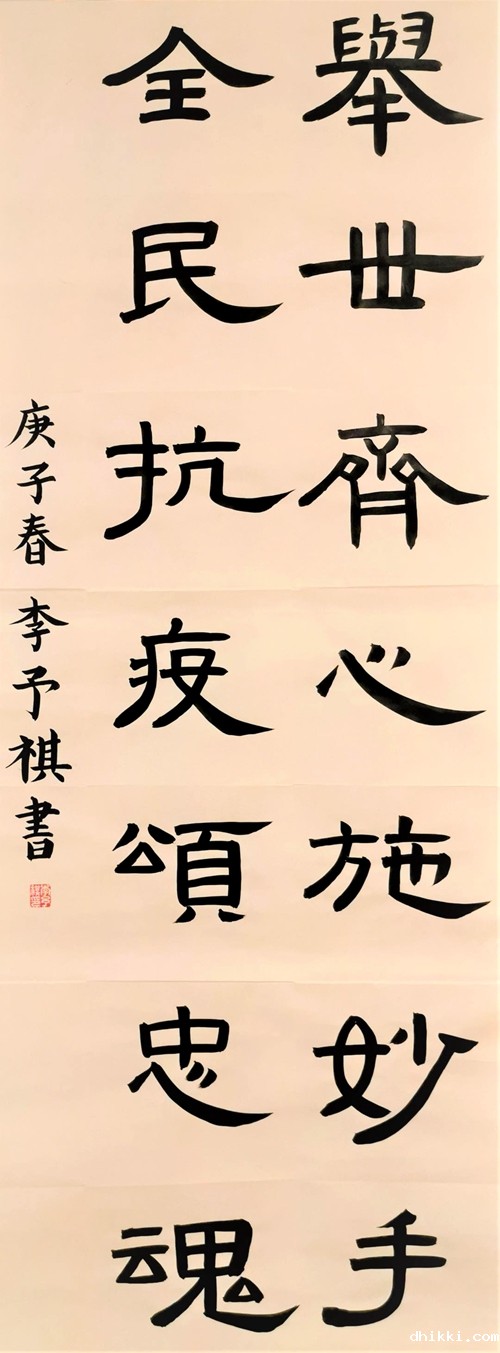 舉世齊心施妙手
全民抗疫頌忠魂
庚子春 李予祺書
dhikki.com